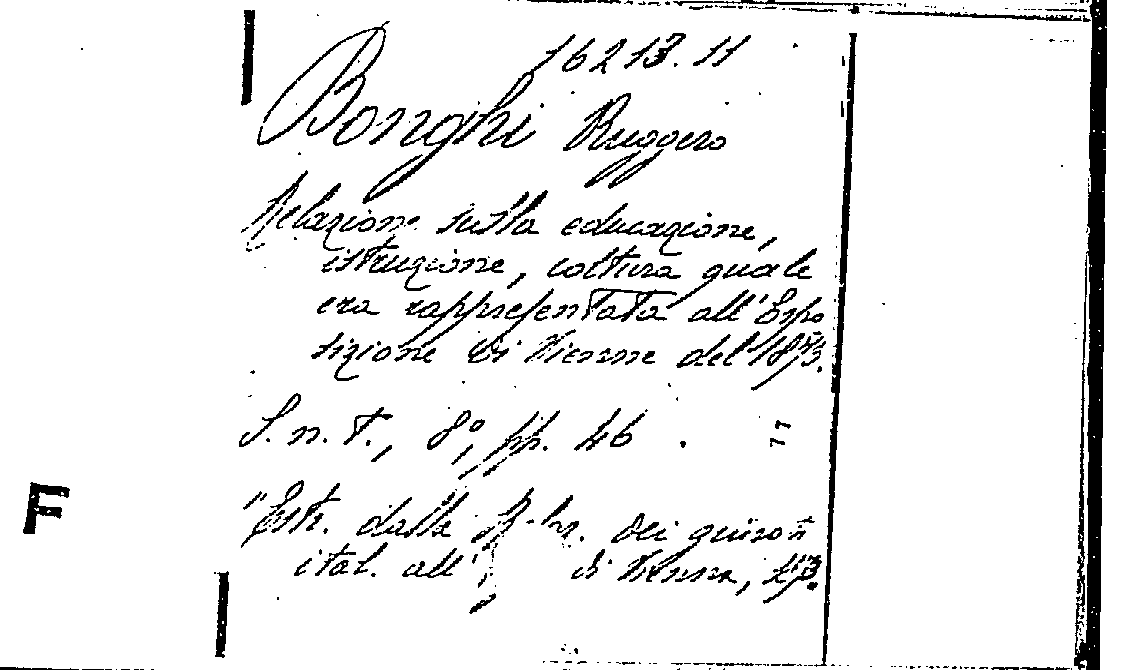 16213.11
Bonghi Ruggero
Relazione sulla educazione,
istruzione, coltura quale
era rappresentata all'Espo
sizione di Vienna del 1873.
S. n. T., 8°, pp. 46.
77
"Estr. dalle dei giurati
F
ital. all' di Vienna,